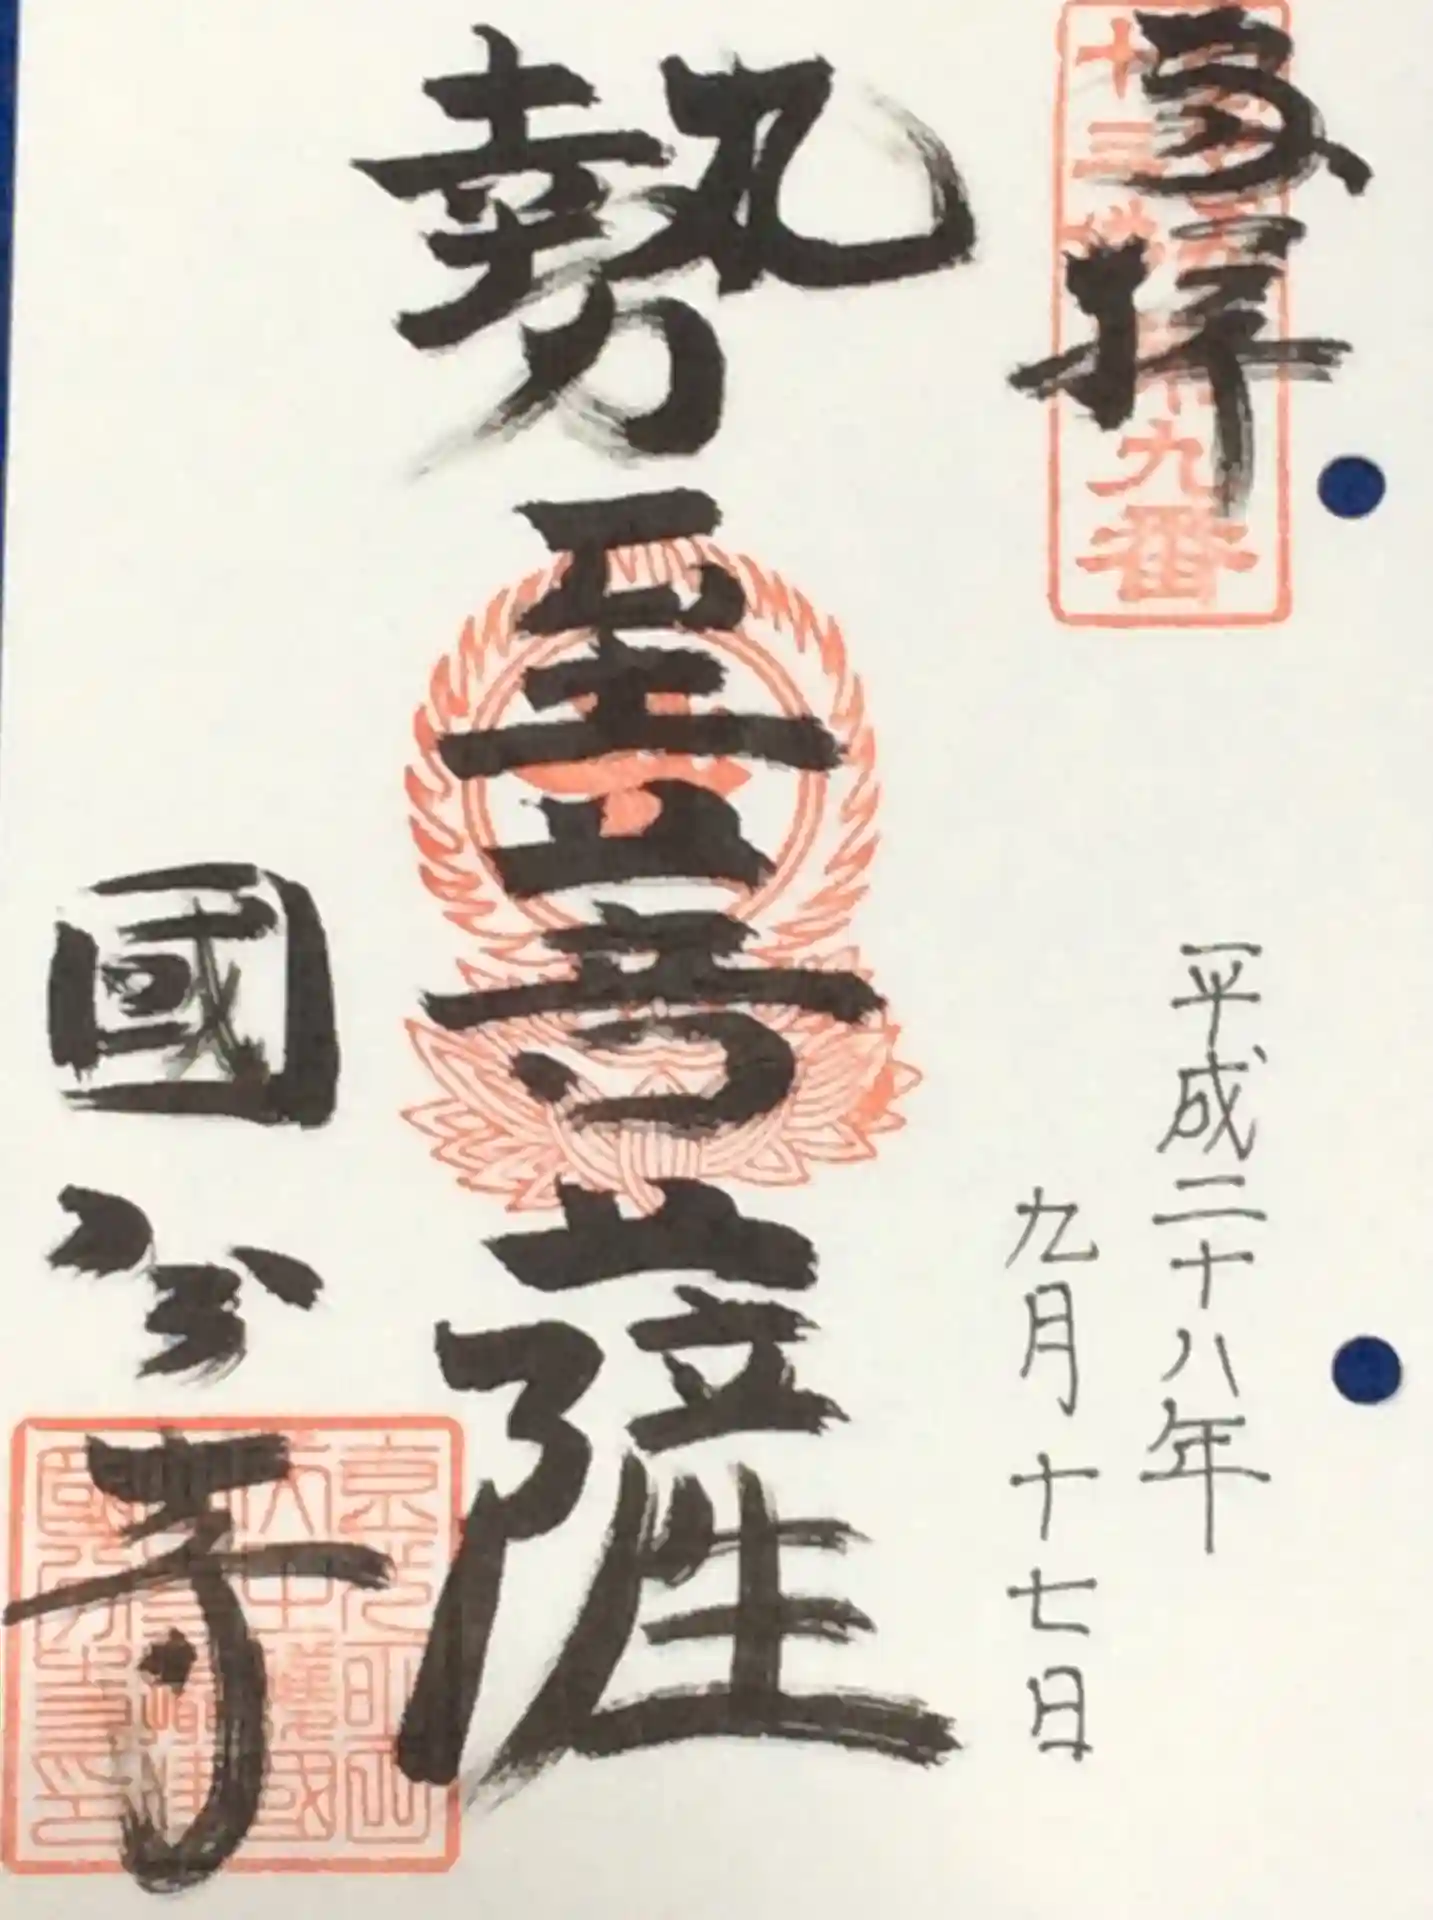 奉拝
九番
平成二十八年
九月十七日
勢至菩薩
國分寺